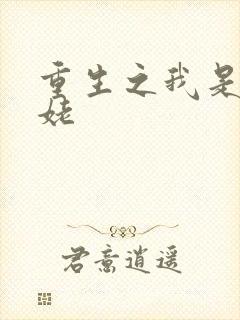 重生之我是
姥
君意逍遥